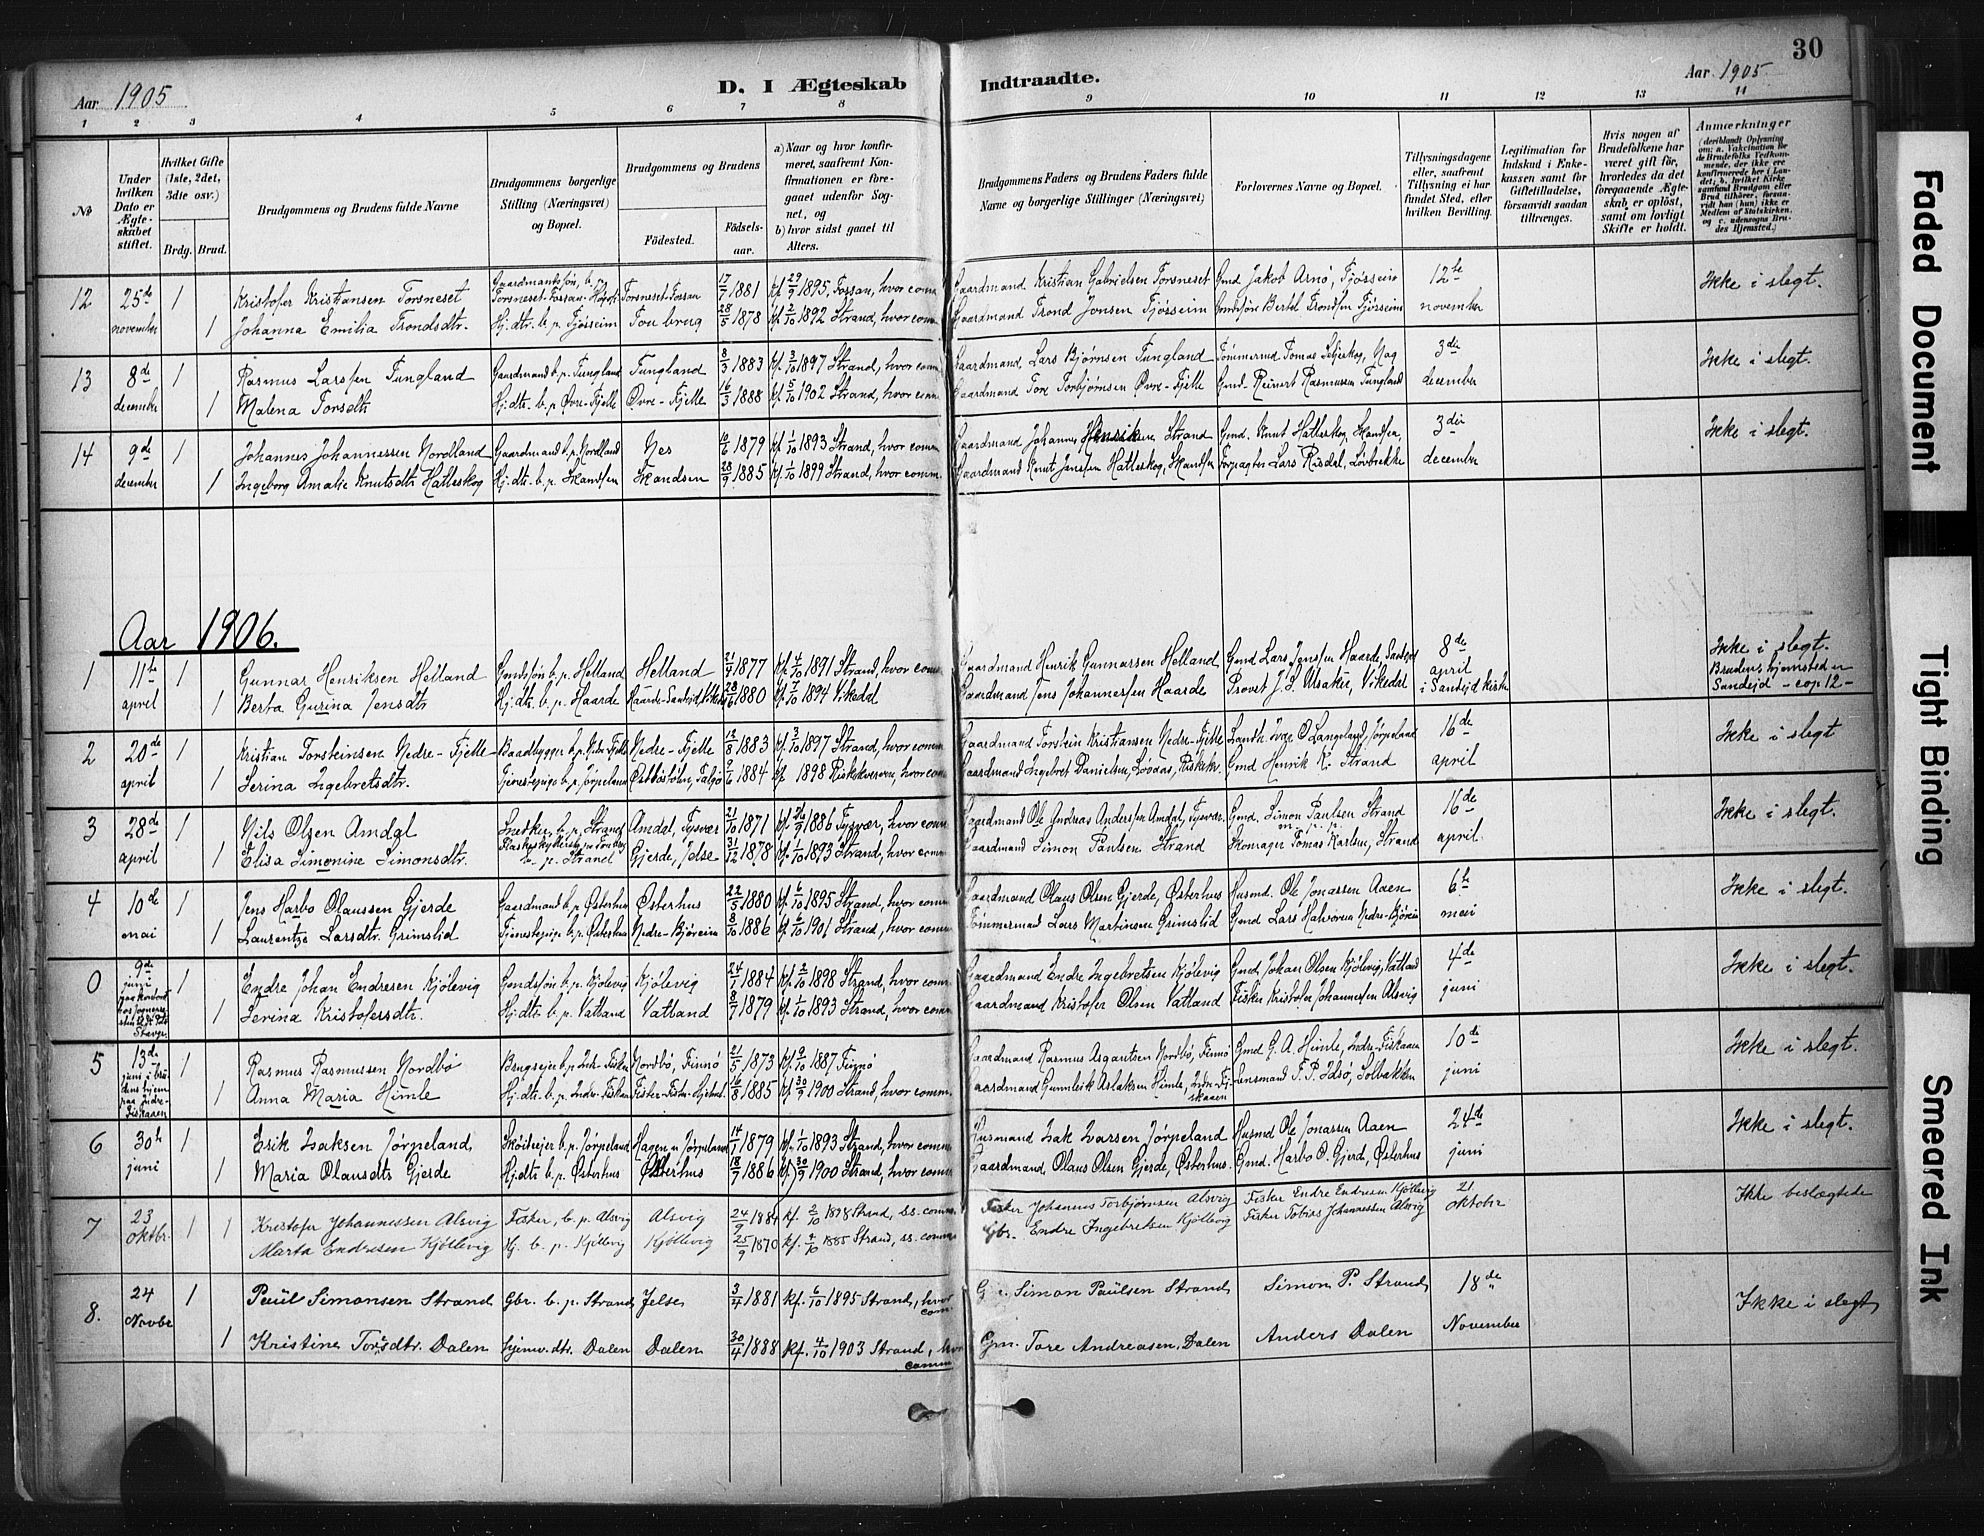 30
Aar 1905
D. I Ægteskab Indtraadte.
Aar 1905
1 2 3 4 5 6 7 8 9 10 11 12 13 14
No
Under hvilken Dato er Ægteskabet stiftet.
Hvilket Gifte (1ste, 2det, 3die osv.)
Brdg. Brud.
Brudgommens og Brudens fulde Navne
Brudgommens borgerlige Stilling (Næringsvei) og Bopæl.
Brudgommens og Brudens
Fødested.
Fødselsaar.
a) Naar og hvor konfirmeret, saafremt Konfirmationen er foregaaet udenfor Sognet, og
b) hvor sidst gaaet til Alters.
Brudgommens Faders og Brudens Faders fulde Navne og borgerlige Stillinger (Næringsvei)
Forlovernes Navne og Bopæl.
Tillysningsdagene eller, saafremt Tillysning ei har fundet Sted, efter hvilken Bevilling.
Legitimation for Indskud i Enkekassen samt for Giftetilladelse, forsaavidt saadan tiltrænges.
Hvis nogen af Brudefolkene har været gift før, hvorledes da det foregaaende Ægteskab er opløst, samt om lovligt Skifte er holdt.
Anmærkninger
(deriblandt Oplysning om: a. Vakcination for de Brudefolks Vedkommende, der ikke ere konfirmerede her i Landet; b. hvilket Kirkesamfund Brudgom eller Brud tilhører, forsaavidt han (hun) ikke er Medlem af Statskirken, og c. udensogns Brudes Hjemsted.)
12 25de 1 Kristofer Kristiansen Torsneset Torsneset-Fossan 17/7 1881 kf 29/9 1895, Fossan, hvor comm. Gaardmand Kristian Gabrielsen Torsneset Gmd Jakob Arnø, Fjøssein 12te Ikke i slegt.
november 1 Johanna Emilia Trondsdtr. Hj.dtr. b.p. Fjøssein Tou brug 28/5 1878 kf 2/10 1892 Strand, hvor comm. Gaardmand Trond Jonsen Fjøssein Gmdssøn Bertel Trondsen Fjøssein november
13 8de 1 Rasmus Larssen Tungland Gaardmand b.p. Tungland Tungland 8/3 1883 kf 3/10 1897 Strand, hvor comm. Gaardmand Lars Bjørnsen Tungland 3de Ikke i slegt.
december 1 Malena Torsdtr Hj.dtr. b.p. Øvre-Fjelle Øvre-Fjelle 16/3 1888 kf 5/10 1902 Strand, hvor comm. Gaardmand Tore Torbjørnsen Øvre-Fjelle Gmd. Reinert Rasmussen Tungland december
14 9de 1 Johannes Johannessen Nordland Gaardmand b.p. Nordland Nes 10/6 1879 kf 1/10 1893 Strand, hvor comm. Gaardmand Johannes Henriksen Strand Gmd. Knut Hatleskog, Skandsen, 3die Ikke i slegt.
december 1 Ingeborg Amalie Knutsdtr Hatleskog Hj.dtr. b.p. Skandsen Skandsen 28/9 1885 kf 1/10 1899 Strand, hvor comm. Gaardmand Knut Jenssen Hatleskog, Skandsen Forpagter Lars Risdal, Løvbrekke december
Aar 1906.
1 11te 1 Gunnar Henriksen Helland Gmdssøn b.p. Helland Helland 21/4 1877 kf 4/10 1891 Strand, hvor comm. Gaardmand Henrik Gunnarsen Helland Gmd Lars Jenssen Haarde, Sandeid 8de Ikke i slegt.
april 1 Berta Gurina Jensdtr Hj.dtr. b.p. Haarde Haarde-Sandeid, Vikedal 28/6 1880 kf 7/10 1894 Vikedal Gaardmand Jens Johannessen Haarde Provst J. S. Utsaker, Vikedal april i Sandeid kirke Brudens hjemsted er Sandeid - cop 12 -
2 20de 1 Kristian Torsteinsen Nedre-Fjelle Baadbygger b.p. Nedre-Fjelle Nedre-Fjelle 13/8 1883 kf 3/10 1897 Strand, hvor comm. Gaardmand Torstein Kristiansen Nedre-Fjelle Landh. Ivar O Langeland, Jørpeland 16de Ikke i slegt
april 1 Serina Ingebretsdtr. Tjenestepige b.p. Jørpeland 9/6 1884 kf 1898 Riskekverven, hvor comm. Gaardmand Ingebret Danielsen, Løvaas, Riskekv. Gmd Henrik K. Strand april
3 28de 1 Nils Olsen Amdal Snedker, b.p. Strand Amdal, Tysvær 21/10 1871 1886 Tysvær, hvor comm. Gaardmand Ole Andreas Anderssen Amdal, Tysvær. Gmd. Simon Paulsen Strand 16de Ikke i slegt.
april 1 Elisa Simonine Simonsdtr. b.p. Strand Gjerde, Jelse 31/12 1878 kf 1/10 1893 Strand, hvor comm. Gaardmand Simon Paulsen Strand Skomager Tomas Karlsen, Strand april
4 10de 1 Jens Harbo Olaussen Gjerde Gaardmand b.p. Østerhus Østerhus 22/5 1880 kf 6/10 1895 Strand, hvor comm. Gaardmand Olaus Olsen Gjerde, Østerhus Husmd. Ole Jonassen Aaen 6te Ikke i slegt.
mai 1 Laurentze Larsdtr. Grimslid Tjenestepige b.p. Østerhus Nedre-Bjøreim 8/10 1886 kf 6/10 1901 Strand, hvor comm. Tømmermand Lars Martinsen Grimslid Gmd Lars Halvorsen Nedre-Bjøreim mai
0 9de juni 1 Endre Johan Endresen Kjølevig Gmdssøn b.p. Kjølevig Kjølevig 24/1 1884 kf. 2/10 1898 Strand, hvor comm. Gaardmand Endre Ingebretsen Kjølevig Gmd. Johan Olsen Kjølevig, Vatland 4de Ikke i slegt.
1 Serina Kristofersdtr. Hj.dtr. b.p. Vatland Vatland 8/7 1879 kf. 1/10 1893 Strand, hvor comm. Gaardmand Kristofer Olsen Vatland Fisker Kristofer Johannesen Alsvig juni
5 13de 1 Rasmus Rasmussen Nordbø Nordbø, Finnø 21/5 1873 kf. 9/10 1887 Finnø Gaardmand Rasmus Asgautsen Nordbø, Finnø Gmd G. A. Himle, Indre-Fiskaaen 10de Ikke i slegt.
juni i brudens hjem paa Indre-Fiskaaen 1 Anna Maria Himle Hj.dtr. b.p. Indre-Fiskaaen 16/8 1885 kf 30/9 1900 Strand, hvor comm. Gaardmand Gunnleik Aslaksen Himle, Indre-Fiskaaen Lensmand T. P. Idsø, Solbakken juni
6 30te 1 Erik Isaksen Jørpeland, b.p. Jørpeland Hagen u. Jørpeland 14/1 1879 kf. 1/10 1893 Strand, hvor comm. Husmand Isak Ivarsen Jørpeland Husmd Ole Jonassen Aaen 24de Ikke i slegt.
juni 1 Maria Olausdtr Gjerde Hj.dtr b.p. Østerhus Østerhus 18/7 1886 kf 30/9 1900 Strand, hvor comm. Gaardmand, Olaus Olsen Gjerde, Østerhus. Gmd. Harbo O. Gjerd, Østerhus juni
7 23 Oktbr. 1 1 Kristofer Johannessen Alsvig Fisker, b.p. Alsvig Alsvig 24/9 1884 kf. 2/10 1898 Strand, ss. comm. Fisker Johannes Torbjørnsen Alsvig Fisker Endre Endresen Kjøllevig 21 oktobr Ikke beslægtede
Marta Endresen Kjøllevig Hj. b.p. Kjøllevig Kjøllevig 25/9 1870 kf. 4/10 1885 Strand, ss. comm. Gbr. Endre Ingebretsen Kjøllevig Fisker Tobias Johannessen Alsvig
8. 24 Novbr 1 Paul Simonsen Strand Gbr. b.p. Strand Jelse 3/4 1881 kf. 6/10 1895 Strand, hvor com. Simon Paulsen Strand Simon P. Strand 18de Ikke i slegt
1 Kristine Torsdtr. Dalen Hjemv. dtr. Dalen Dalen 30/4 1888 kf. 4/10 1903 Strand, hvor comm. Gm. Tore Andreasen, Dalen Anders Dalen November
Faded Document
Tight Binding
Smeared Ink